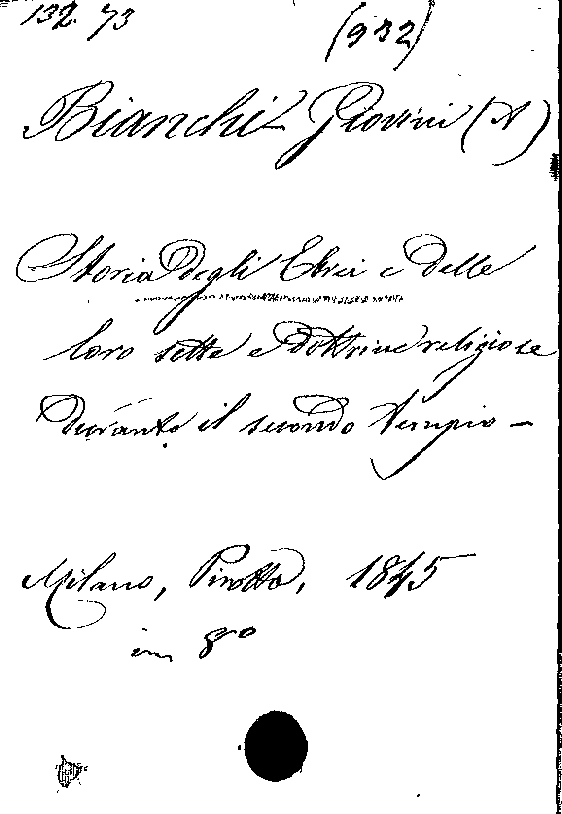 132. 73
(932)
Bianchi Giovini (A)
Storia degli Ebrei e delle
loro sette e dottrine religiose
durante il secondo tempio -
Milano, Pirotta, 1845
in 8º